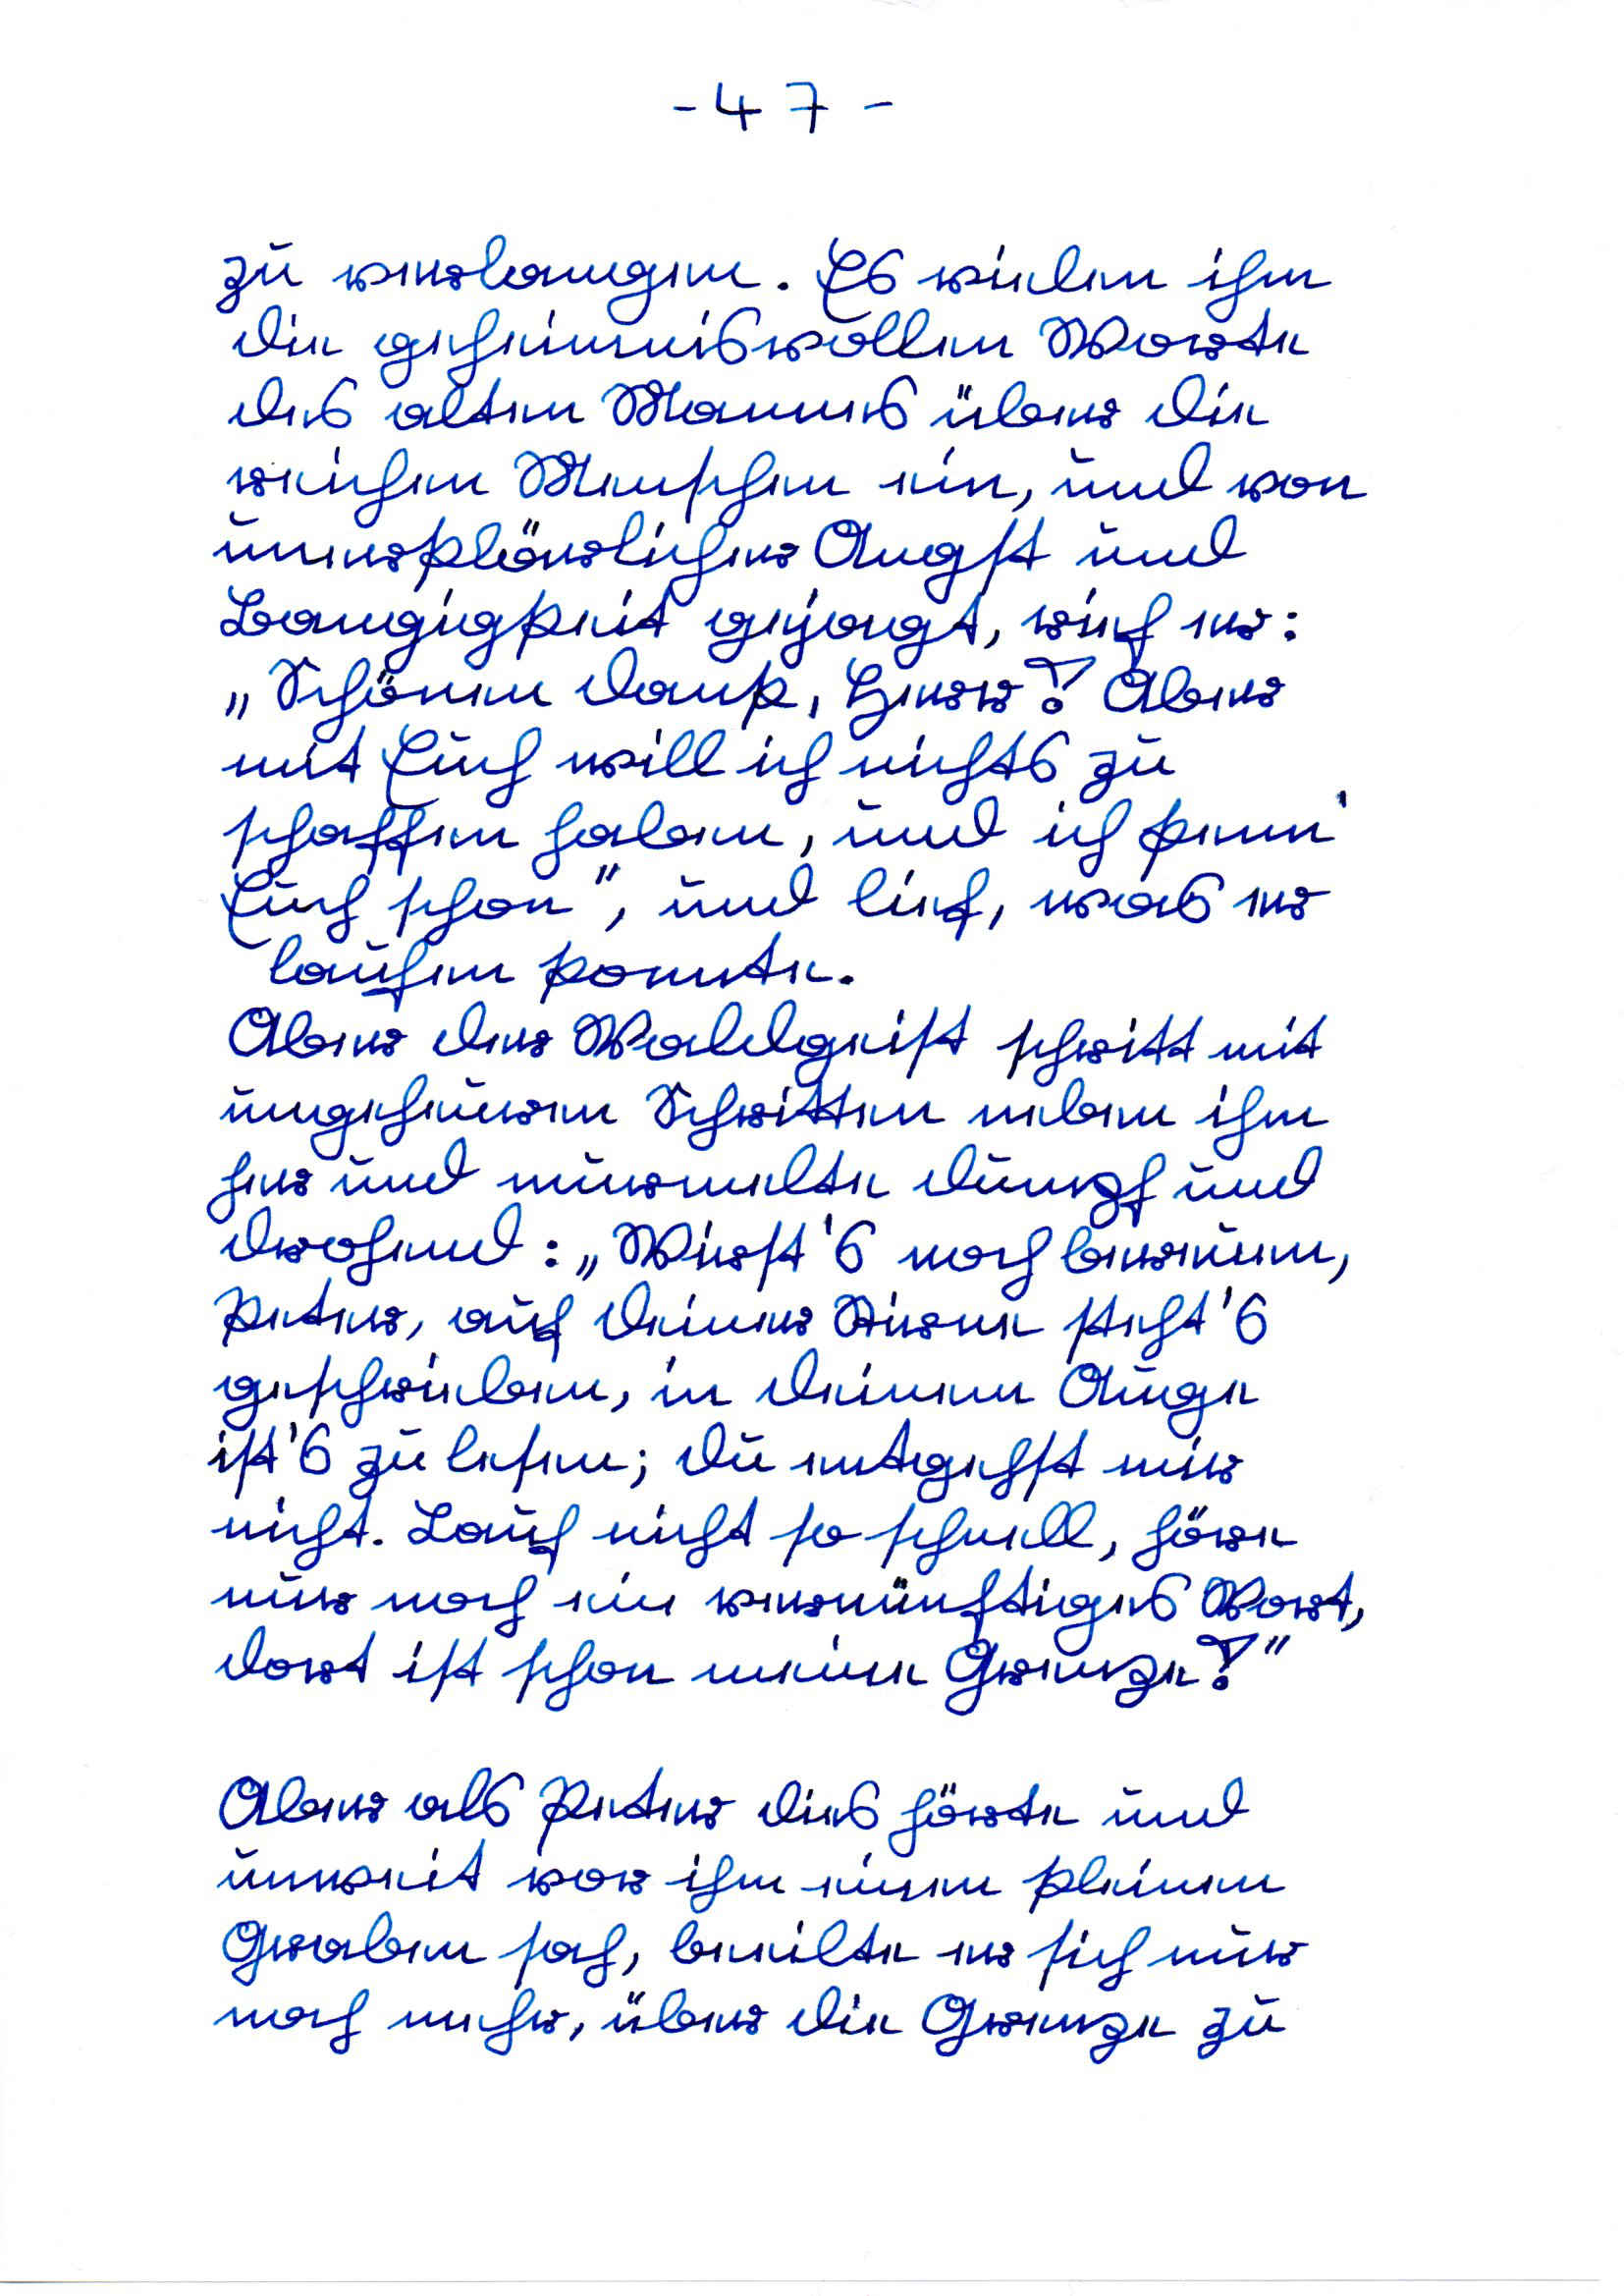 - 47 -
zu verlangen. Es fielen ihm
die geheimnisvollen Worte
des alten Mannes über die
reichen Menschen ein, und von
unerklärlicher Angst und
Bangigkeit gejagt, rief er:
„Schönen Dank, Herr! Aber
mit Euch will ich nichts zu
schaffen haben, und ich kenn'
Euch schon", und lief, was er
laufen konnte.
Aber der Waldgeist schritt mit
ungeheuren Schritten neben ihm
her und murmelte dumpf und
drohend: „Wirst's noch bereuen,
Peter, auf deiner Stirne steht's
geschrieben, in deinem Auge
ist's zu lesen; du entgehst mir
nicht. Lauf nicht so schnell, höre
nur noch ein vernünftiges Wort,
dort ist schon meine Grenze!"
Aber als Peter dies hörte und
unweit vor ihm einen kleinen
Graben sah, beeilte er sich nur
noch mehr, über die Grenze zu